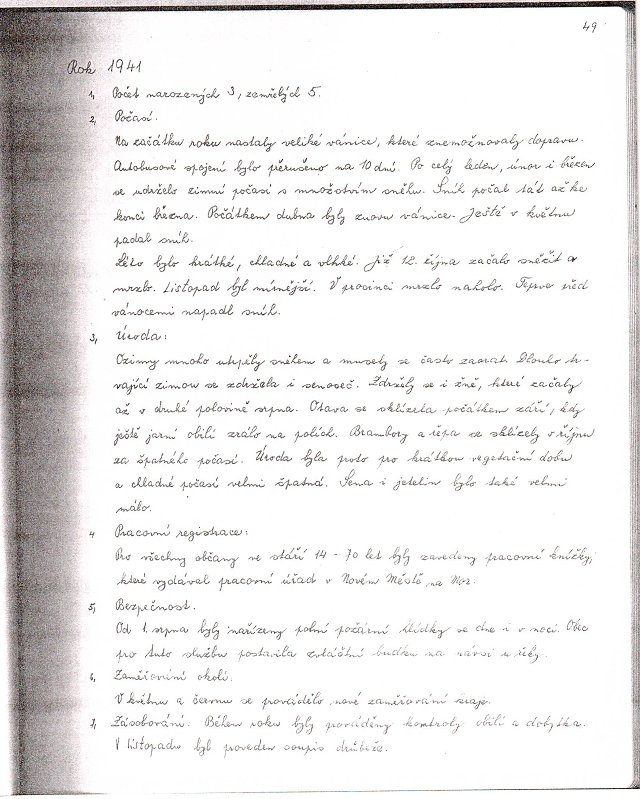 49
Rok 1941
1, Počet narozených 3, zemřelých 5.
2, Počasí.
Na začátku roku nastaly veliké vánice, které znemožnovaly dopravu.
Autobusové spojení bylo přerušeno na 10 dní. Po celý leden, únor i březen
se udrželo zimní počasí s množstvím sněhu. Sníh počal tát až ke
konci března. Počátkem dubna byly znovu vánice. Ještě v květnu
padal sníh.
Léto bylo krátké, chladné a vlhké. Již 12. října začalo sněžit a
mrzlo. Listopad byl mírnější. V prosinci mrzlo naholo. Teprve před
vánocemi napadl sníh.
3, Úroda:
Ozimy mnoho utrpěly sněhem a musely se často zaorat. Dlouho tr-
vající zimou se zdržela i senoseč. Zdržely se i žně, které začaly
až v druhé polovině srpna. Otava se sklízela počátkem září, kdy
ještě jarní obilí zrálo na polích. Brambory a řepa se sklízely v říjnu
za špatného počasí. Úroda byla proto pro krátkou vegetační dobu
a chladné počasí velmi špatná. Sena i jetelin bylo také velmi
málo.
4 Pracovní registrace:
Pro všechny občany ve stáří 14 - 70 let byly zavedeny pracovní knížky,
které vydával pracovní úřad v Novém Městě na Mor.
5, Bezpečnost.
Od 1. srpna byly nařízeny polní požární hlídky ve dne i v noci. Obec
pro tuto službu postavila zvláštní budku na návsi u
6, Zaměřování okolí.
V květnu a červnu se provádělo nové zaměřování kraje.
7, Zásobování. Během roku byly prováděny kontroly obilí a dobytka.
V listopadu byl proveden soupis drůbeže.